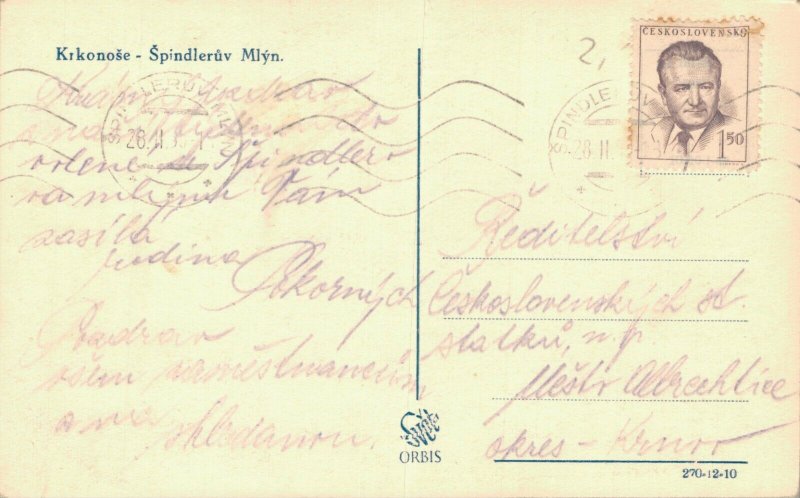 Krkonoše - Špindlerův Mlýn.
ČESKOSLOVENSKO
1 50
2,
ŠPINDLERŮV MLÝN
28.II
ŠPINDLERŮV
28.II
pozdrav
Špindlero
va mlýna Vám
zasílá
rodina
Pokorných
Pozdrav
všem zaměstnancům
a na
shledanou.
Ředitelství
Československých st.
statků, n.p.
Město Albrechtice
okres - Krnov
Svět
ORBIS
270-12-10